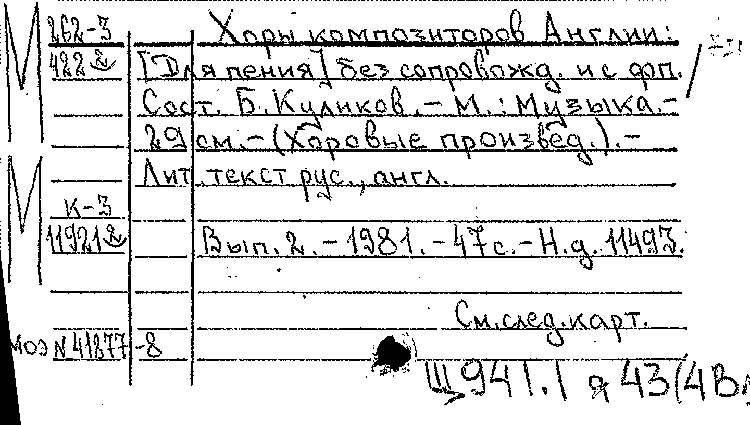 М 262-3 Хоры композиторов Англии:
422 [Для пения] без сопровожд. и с фп. /
Сост. Б. Куликов. – М. : Музыка. –
29 см. – (Хоровые произвед.). –
М Лит. текст рус., англ.
К-3
11921 Вып. 2. – 1981. – 47 с. – Н.д. 11493.
См. след. карт.
МОЭ N 41877-8
Щ 941.1 я 43(4Вл